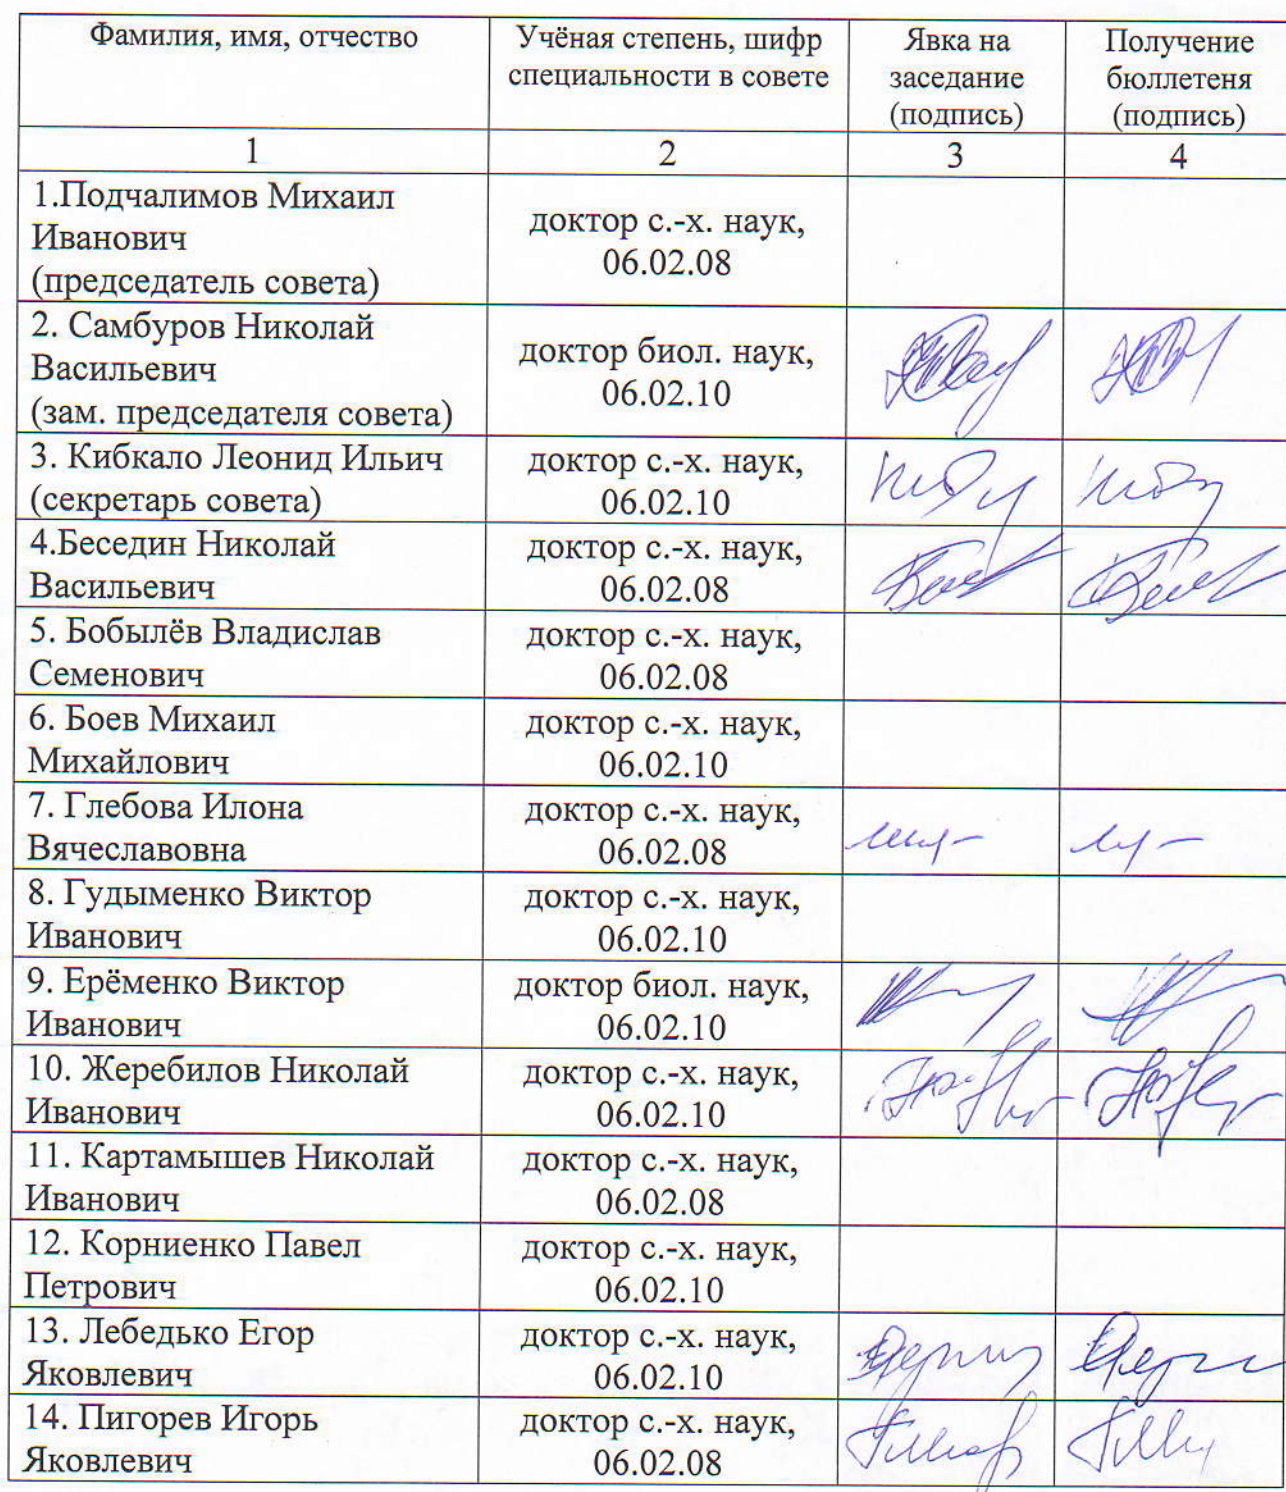 Фамилия, имя, отчество
Учёная степень, шифр
специальности в совете
Явка на
заседание
(подпись)
Получение
бюллетеня
(подпись)
1
2
3
4
1.Подчалимов Михаил
Иванович
(председатель совета)
доктор с.-х. наук,
06.02.08
2. Самбуров Николай
Васильевич
(зам. председателя совета)
доктор биол. наук,
06.02.10
3. Кибкало Леонид Ильич
(секретарь совета)
доктор с.-х. наук,
06.02.10
4.Беседин Николай
Васильевич
доктор с.-х. наук,
06.02.08
5. Бобылёв Владислав
Семенович
доктор с.-х. наук,
06.02.08
6. Боев Михаил
Михайлович
доктор с.-х. наук,
06.02.10
7. Глебова Илона
Вячеславовна
доктор с.-х. наук,
06.02.08
8. Гудыменко Виктор
Иванович
доктор с.-х. наук,
06.02.10
9. Ерёменко Виктор
Иванович
доктор биол. наук,
06.02.10
10. Жеребилов Николай
Иванович
доктор с.-х. наук,
06.02.10
11. Картамышев Николай
Иванович
доктор с.-х. наук,
06.02.08
12. Корниенко Павел
Петрович
доктор с.-х. наук,
06.02.10
13. Лебедько Егор
Яковлевич
доктор с.-х. наук,
06.02.10
14. Пигорев Игорь
Яковлевич
доктор с.-х. наук,
06.02.08